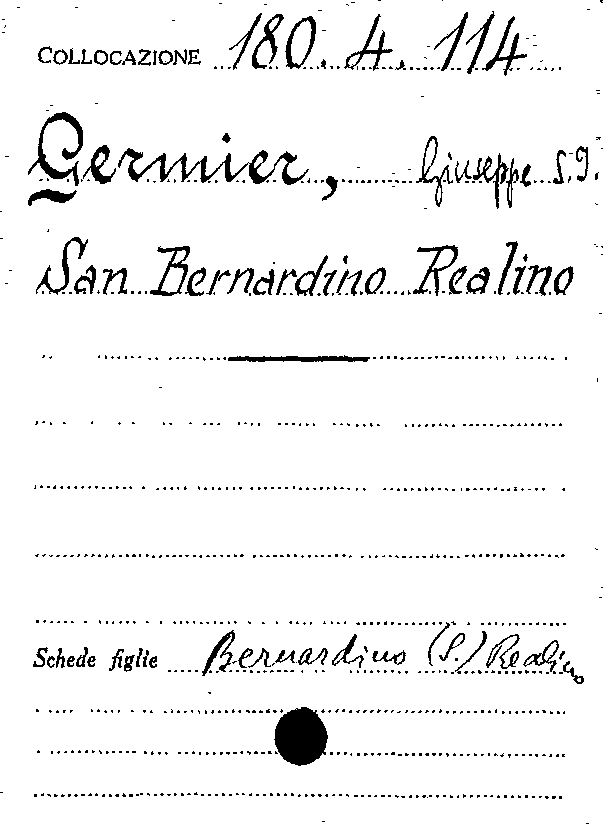 COLLOCAZIONE 180. 4. 114
Germier, Giuseppe S.J.
San Bernardino Realino
Schede figlie Bernardino (S.) Realino